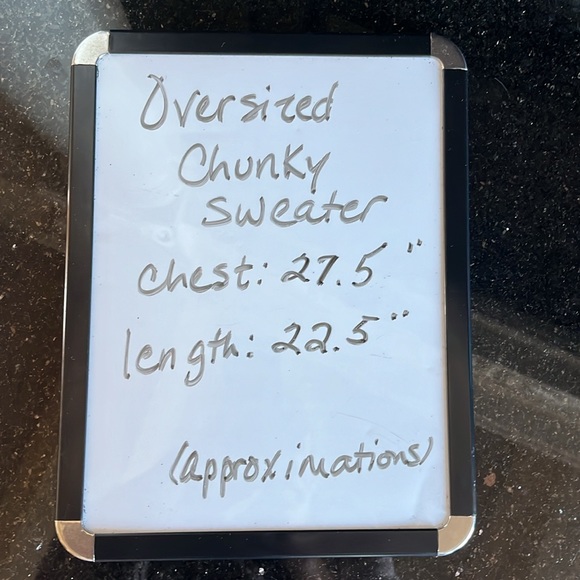 Oversized
Chunky
sweater
chest: 27.5"
length: 22.5"
(approximations)